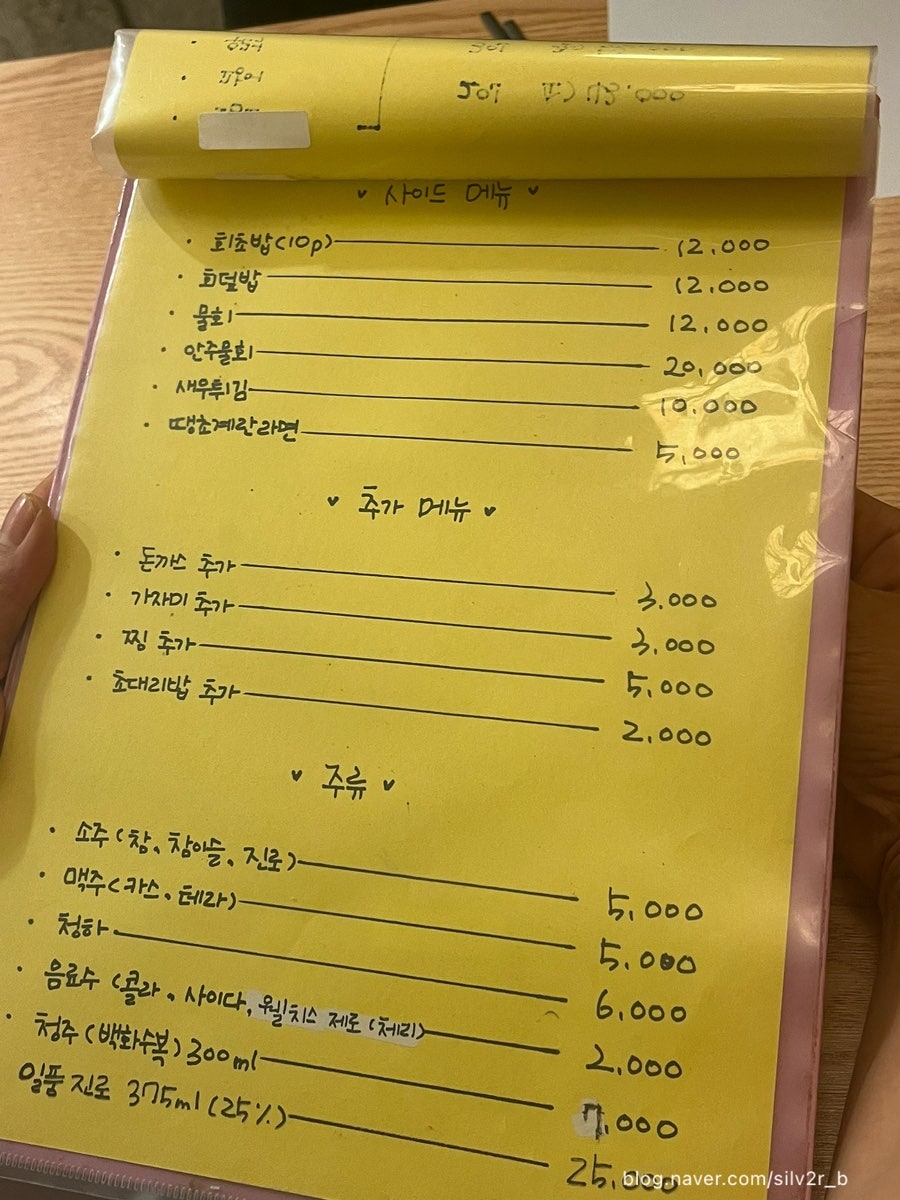 ♥ 사이드 메뉴 ♥
· 회초밥(10p) 12,000
· 회덮밥 12,000
· 물회 12,000
· 안주물회 20,000
· 새우튀김 10,000
· 땡초계란라면 5,000
♥ 추가 메뉴 ♥
· 돈까스 추가 3,000
· 가자미 추가 3,000
· 찜 추가 5,000
· 초대리밥 추가 2,000
♥ 주류 ♥
· 소주(참, 참이슬, 진로) 5,000
· 맥주(카스, 테라) 5,000
· 청하 6,000
· 음료수 (콜라, 사이다, 웰치스 제로(체리) 2,000
· 청주(백화수복) 300ml 7,000
일품 진로 375ml (25%) 25,000
blog.naver.com/silv2r_b